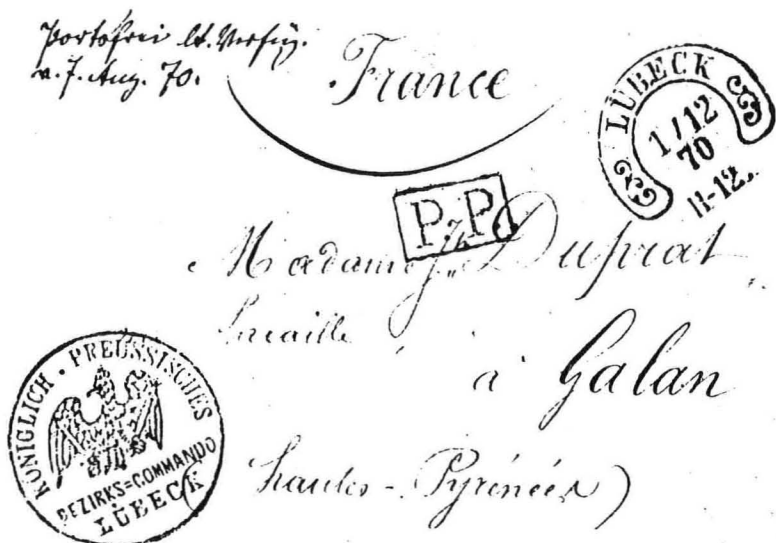 Portofrei lt. Verfüg.
v. 7. Aug. 70.
France
LÜBECK
1/12
70
11-12.
P.P.
Madame Duprat
à Galan
Hautes-Pyrénées)
KÖNIGLICH · PREUSSISCHES
BEZIRKS=COMMANDO
LÜBECK